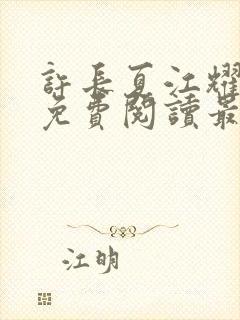 許長夏江耀
免費閱讀最
江明